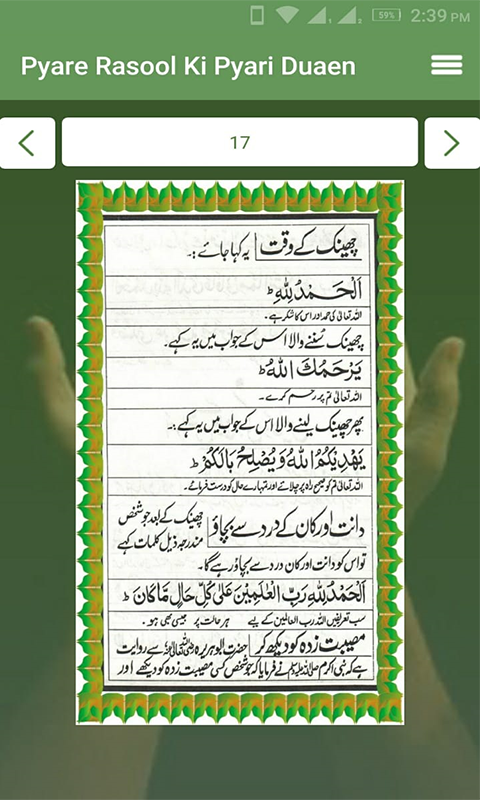 59% 2:39 PM
Pyare Rasool Ki Pyari Duaen
17
چھینک کے وقت یہ کہا جائے :۔
اَلْحَمْدُ لِلّٰهِ ط
اللہ تعالیٰ کی حمد اور اس کا شکر ہے۔
چھینک سُننے والا اس کے جواب میں یہ کہے۔
يَرْحَمُكَ اللّٰهُ ط
اللہ تعالیٰ تم پر رحم کرے۔
پھر چھینک لینے والا اس کے جواب میں یہ کہے :۔
يَهْدِيْكُمُ اللّٰهُ وَيُصْلِحُ بَالَكُمْ ط
اللہ تعالیٰ تم کو صحیح راہ پر چلائے اور تمہارے حال کو درست فرمائے۔
دانت اور کان کے درد سے بچاؤ چھینک کے بعد جو شخص
مندرجہ ذیل کلمات کہے
تو اس کو دانت اور کان درد سے بچاؤ رہے گا۔
اَلْحَمْدُ لِلّٰهِ رَبِّ الْعٰلَمِيْنَ عَلٰى كُلِّ حَالٍ مَّا كَانَ ط
سب تعریفیں اللہ رب العالمین کے لیے ہر حالت پر جیسی بھی ہو۔
مصیبت زدہ کو دیکھ کر حضرت ابوہریرہ رضی اللہ تعالیٰ عنہ سے روایت
ہے کہ نبی اکرم صلی اللہ علیہ وسلم نے فرمایا کہ جو شخص کسی مصیبت زدہ کو دیکھے اور